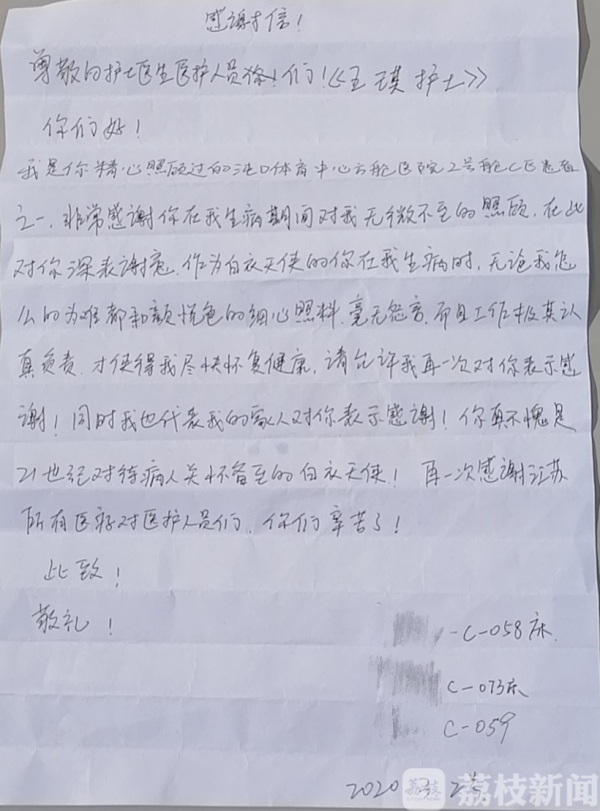 感谢信！
尊敬的护士医生医护人员你们！《王琪护士》
你们好！
我是你精心照顾过的江口体育中心方舱医院2号舱C区患者
之一，非常感谢你在我生病期间对我无微不至的照顾，在此
对你深表谢意，作为白衣天使的你在我生病时，无论我怎
么的为难都和颜悦色的细心照料，毫无怨言，而且工作极其认
真负责，才使得我尽快恢复健康，请允许我再一次对你表示感
谢！同时我也代表我的家人对你表示感谢！你真不愧是
21世纪对待病人关怀备至的白衣天使！再一次感谢江苏
所有医疗对医护人员们，你们辛苦了！
此致！
敬礼！
-C-058床
C-073床
C-059
2020
荔枝新闻